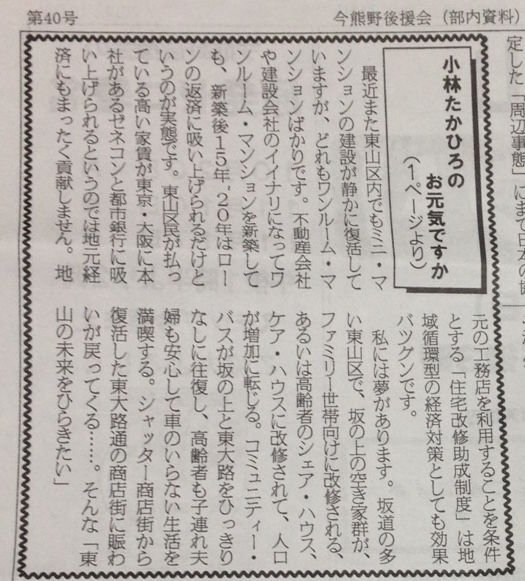 第40号
今熊野後援会（部内資料）
小林たかひろの
お元気ですか
（1ページより）
最近また東山区内でもミニ・マ
ンションの建設が静かに復活して
いますが、どれもワンルーム・マ
ンションばかりです。不動産会社
や建設会社のイイナリになってワ
ンルーム・マンションを新築して
も、新築後15年、20年はロー
ンの返済に吸い上げられるだけと
いうのが実態です。東山区民が払っ
ている高い家賃が東京・大阪に本
社があるゼネコンと都市銀行に吸
い上げられるというのでは地元経
済にもまったく貢献しません。地
元の工務店を利用することを条件
とする「住宅改修助成制度」は地
域循環型の経済対策としても効果
バツグンです。
私には夢があります。坂道の多
い東山区で、坂の上の空き家群が、
ファミリー世帯向けに改修される、
あるいは高齢者のシェア・ハウス、
ケア・ハウスに改修されて、人口
が増加に転じる。コミュニティー・
バスが坂の上と東大路をひっきり
なしに往復し、高齢者も子連れ夫
婦も安心して車のいらない生活を
満喫する。シャッター商店街から
復活した東大路通の商店街に賑わ
いが戻ってくる……。そんな「東
山の未来をひらきたい」